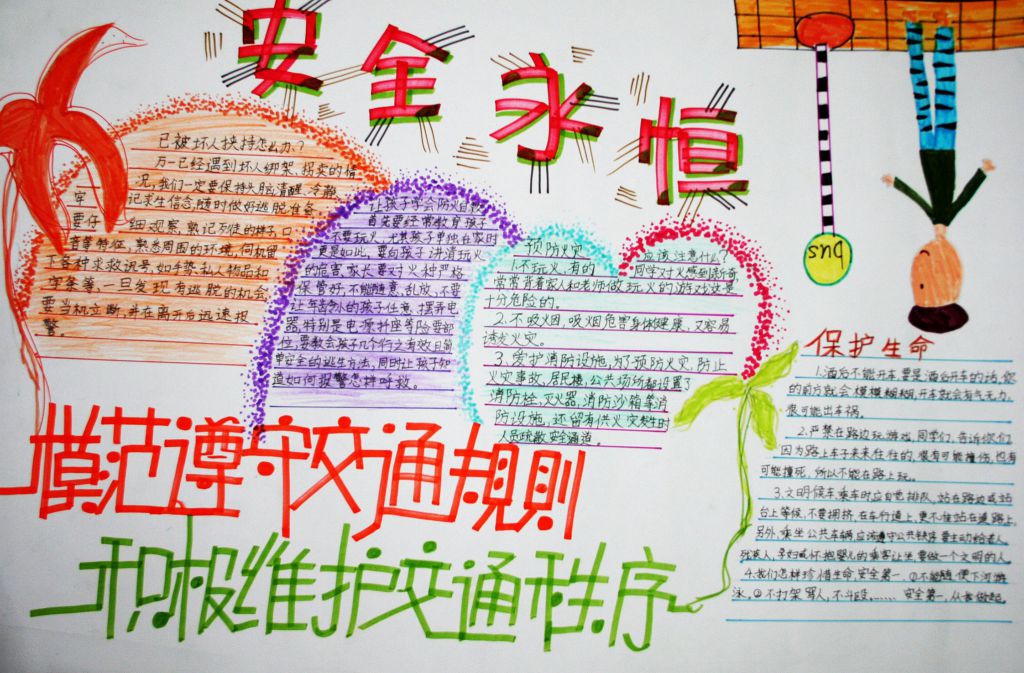 安全永恒
已被坏人挟持怎么办?
万一已经遇到坏人绑架、拐卖的情
况,我们一定要保持头脑清醒、冷静
牢记求生信念,随时做好逃脱准备。
要仔细观察,熟记歹徒的样子,口
音等特征,熟悉周围的环境,伺机留
下各种求救讯号,如手势、私人物品和
字条等,一旦发现有逃脱的机会,
要当机立断,并在离开后迅速报
警。
让孩子学会防火自救
首先要经常教育孩子
不要玩火,尤其孩子单独在家时
更是如此,要向孩子讲清玩火
的危害,家长要对火种严格
保管好,不能随意,乱放,不要
让年龄小的孩子任意、摆弄电
器,特别是电源插座等险要部
位,要教会孩子几个行之有效且简
单安全的逃生方法,同时让孩子知
道如何报警怎样呼救。
预防火灾
应该注意什么?
1.不玩火,有的
同学对火感到新奇
常常背着家人和老师做玩火的游戏这是
十分危险的。
2.不吸烟,吸烟危害身体健康,又容易
诱发火灾。
3.爱护消防设施,为了预防火灾,防止
火灾事故,居民楼,公共场所都设置了
消防栓、灭火器、消防沙箱等消
防设施,还留有供火灾发生时
人员疏散安全通道。
bus
保护生命
1.酒后不能开车,要是酒后开车的话,您
的前方就会模模糊糊,开车就会有气无力,
很可能出车祸。
2.严禁在路边玩游戏,同学们,告诉你们
因为路上车子来来往往的,很有可能撞伤,也有
可能撞死,所以不能在路上玩。
3.文明候车,乘车时应自觉排队,站在路边或站
台上等候,不要拥挤,在车行道上,更不准站在道路上。
另外,乘坐公共车辆,应该遵守公共秩序,要主动给老人、
残疾人、孕妇或怀抱婴儿的乘客让坐,要做一个文明的人
4.我们怎样珍惜生命,安全第一,①不能随便下河游
泳,②不打架骂人,不斗殴,……安全第一,从我做起。
模范遵守交通规则
积极维护交通秩序